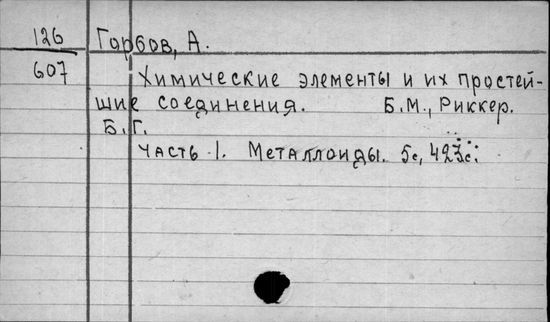 126
607
Горбов, А.
Химические элементы и их простей-
шие соединения. Б.М., Риккер.
Б.Г.
Часть I. Металлоиды. 5с, 423с.